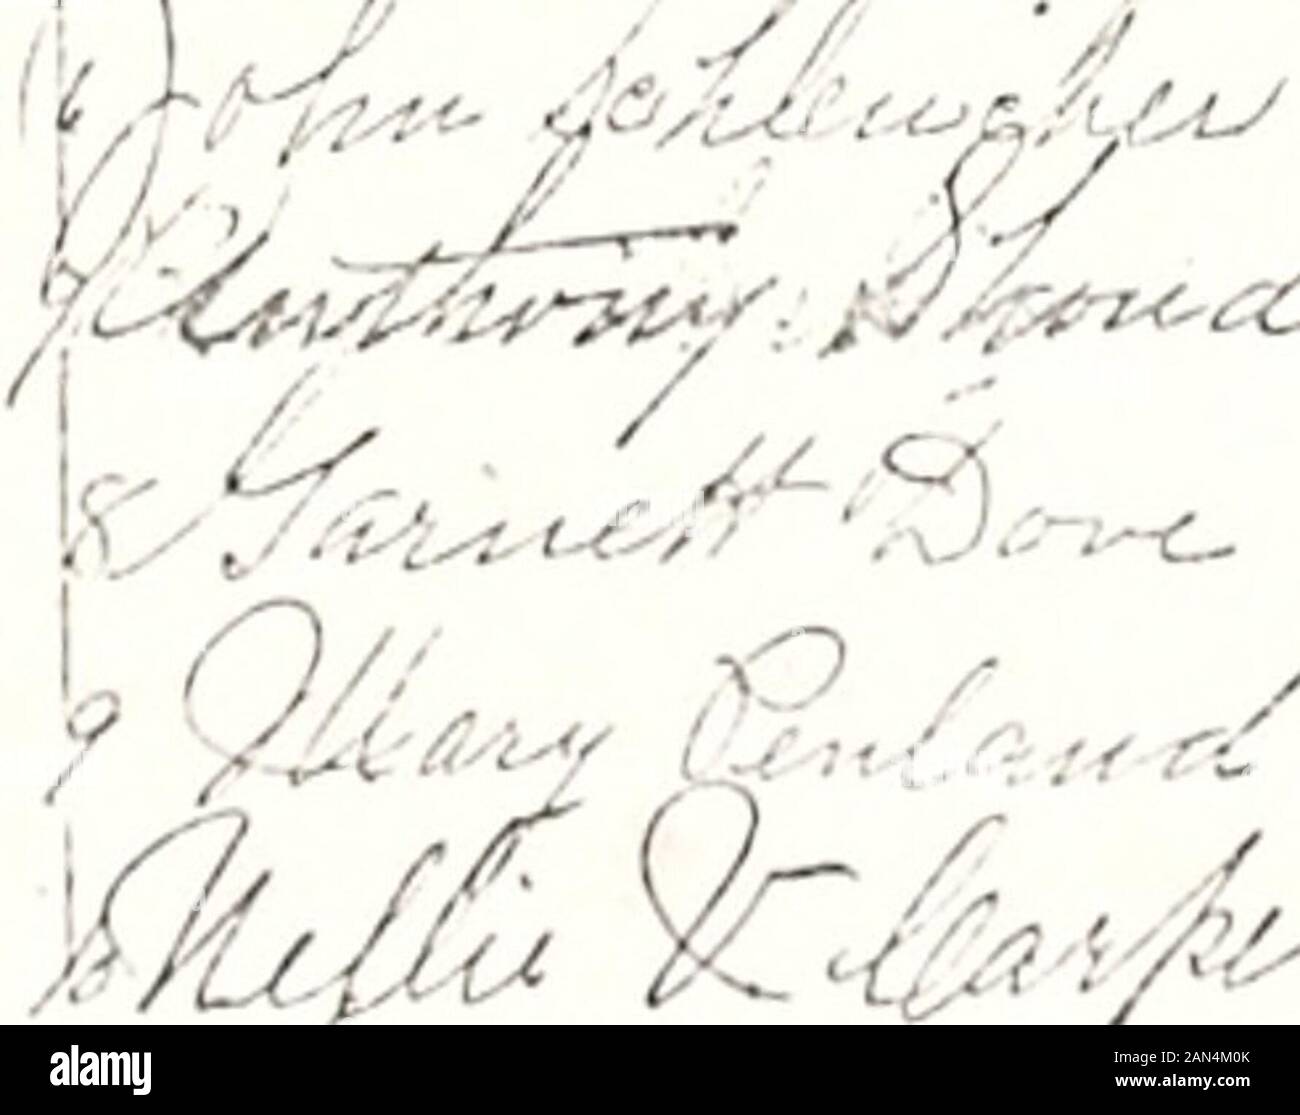 6 John Schleucher
7 Anthony
8 Garnett Dove
9 Mary Penland
10 Nellie V Carpe
alamy
Image ID: 2AN4M0K
www.alamy.com